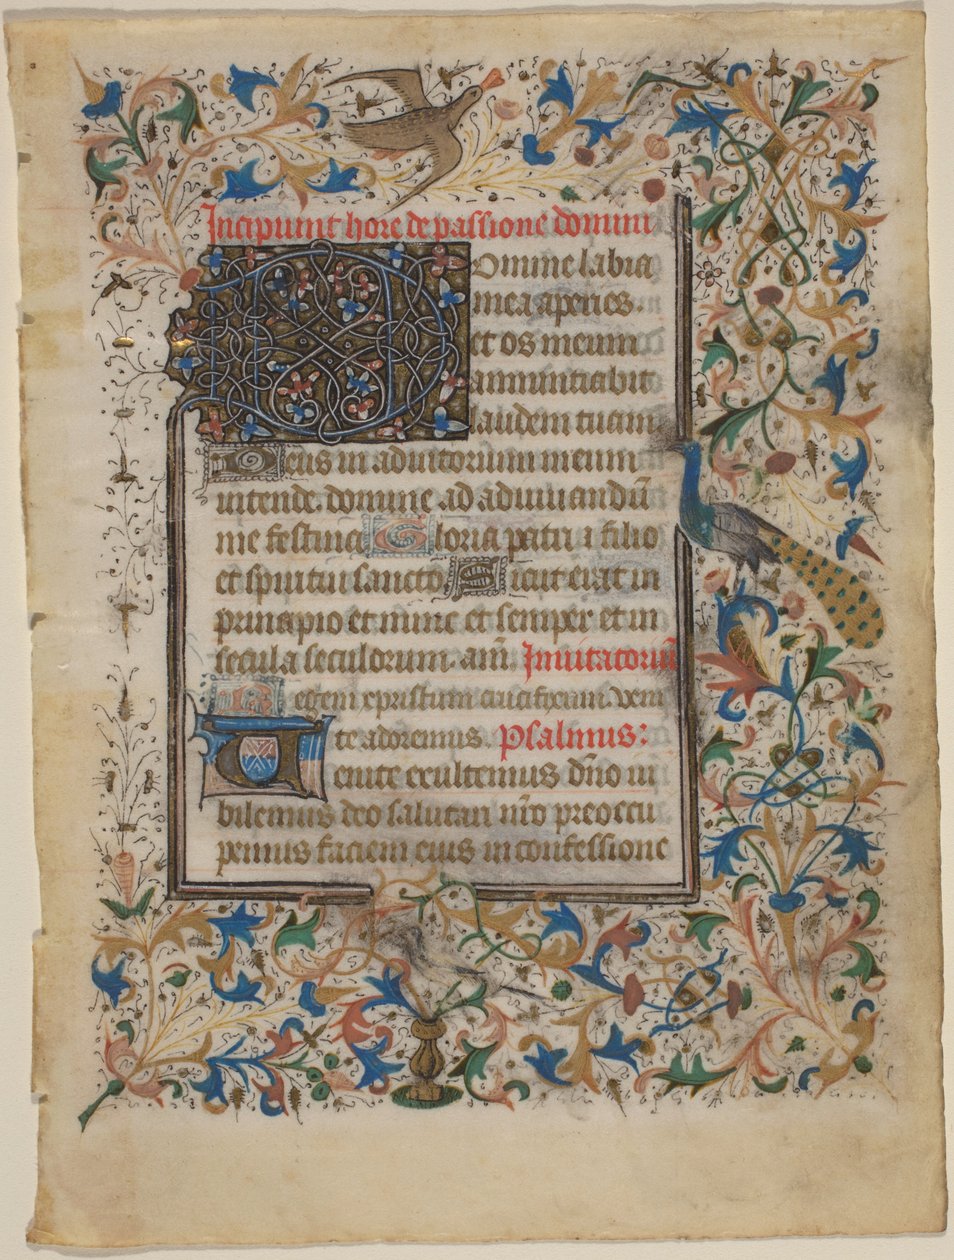 Incipiunt hore de passione domini
Domine labia
mea aperies.
et os meum
annunciabit
laudem tuam
Deus in adiutorium meum
intende. domine ad adiuuandū
me festina Gloria patri i filio
et spiritui sancto Sicut erat in
principio et nunc et semper. et in
secula seculorum. am̄. Inuitatoriū
Regem xp̄istum crucifixum. veni
te adoremus. Psalmus:
Uenite exultemus dn̄o iu
bilemus deo salutari nr̄o preoccu
pemus faciem eius in confessione